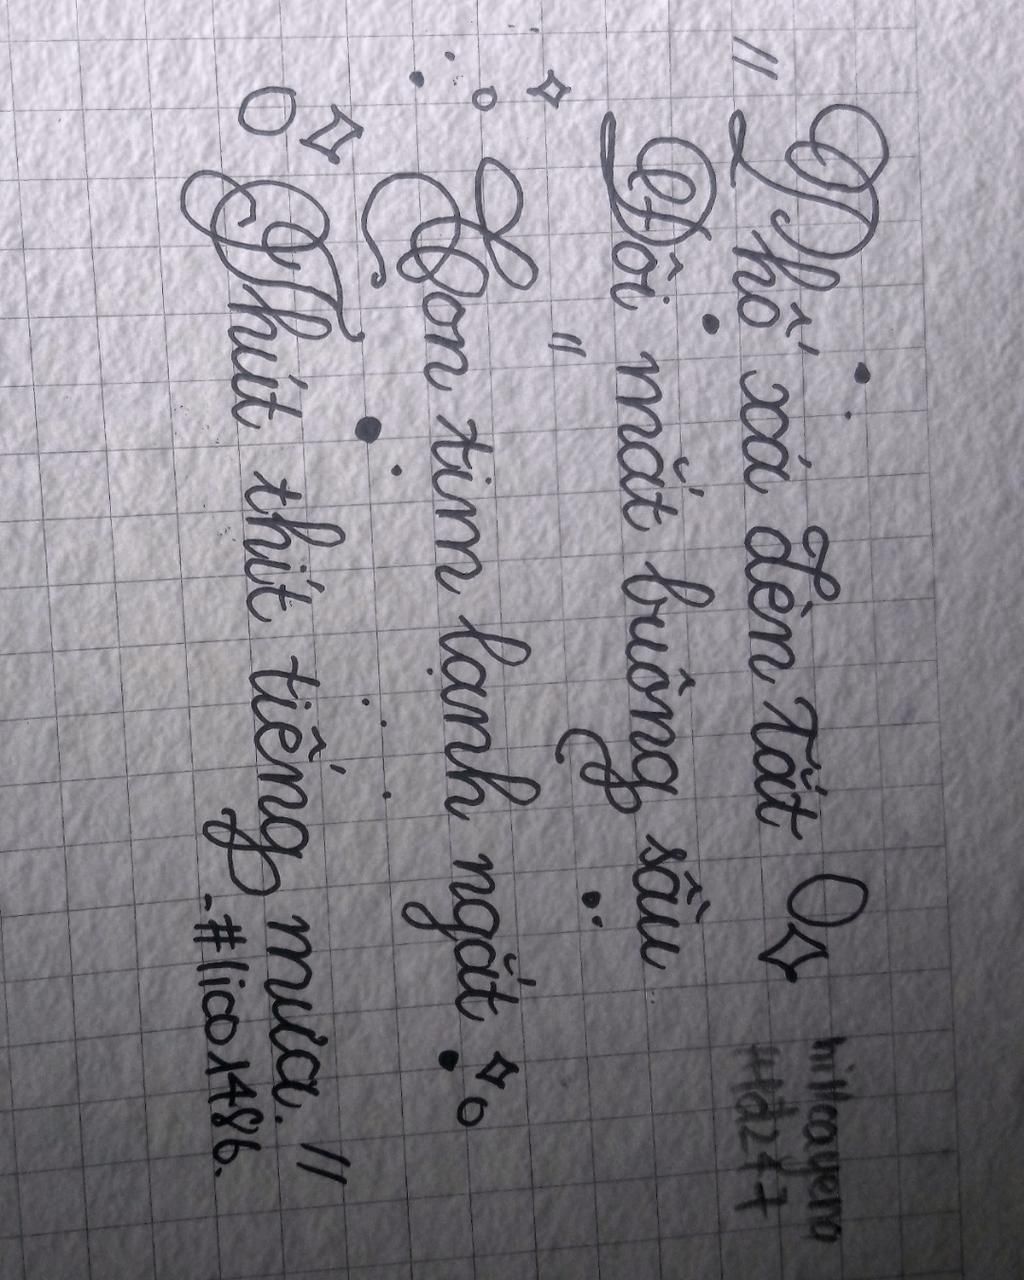 "Phố xá đèn tắt
Đôi mắt buông sầu
"
Con tim lạnh ngắt
Thút thít tiếng mưa."
-#lico1486.